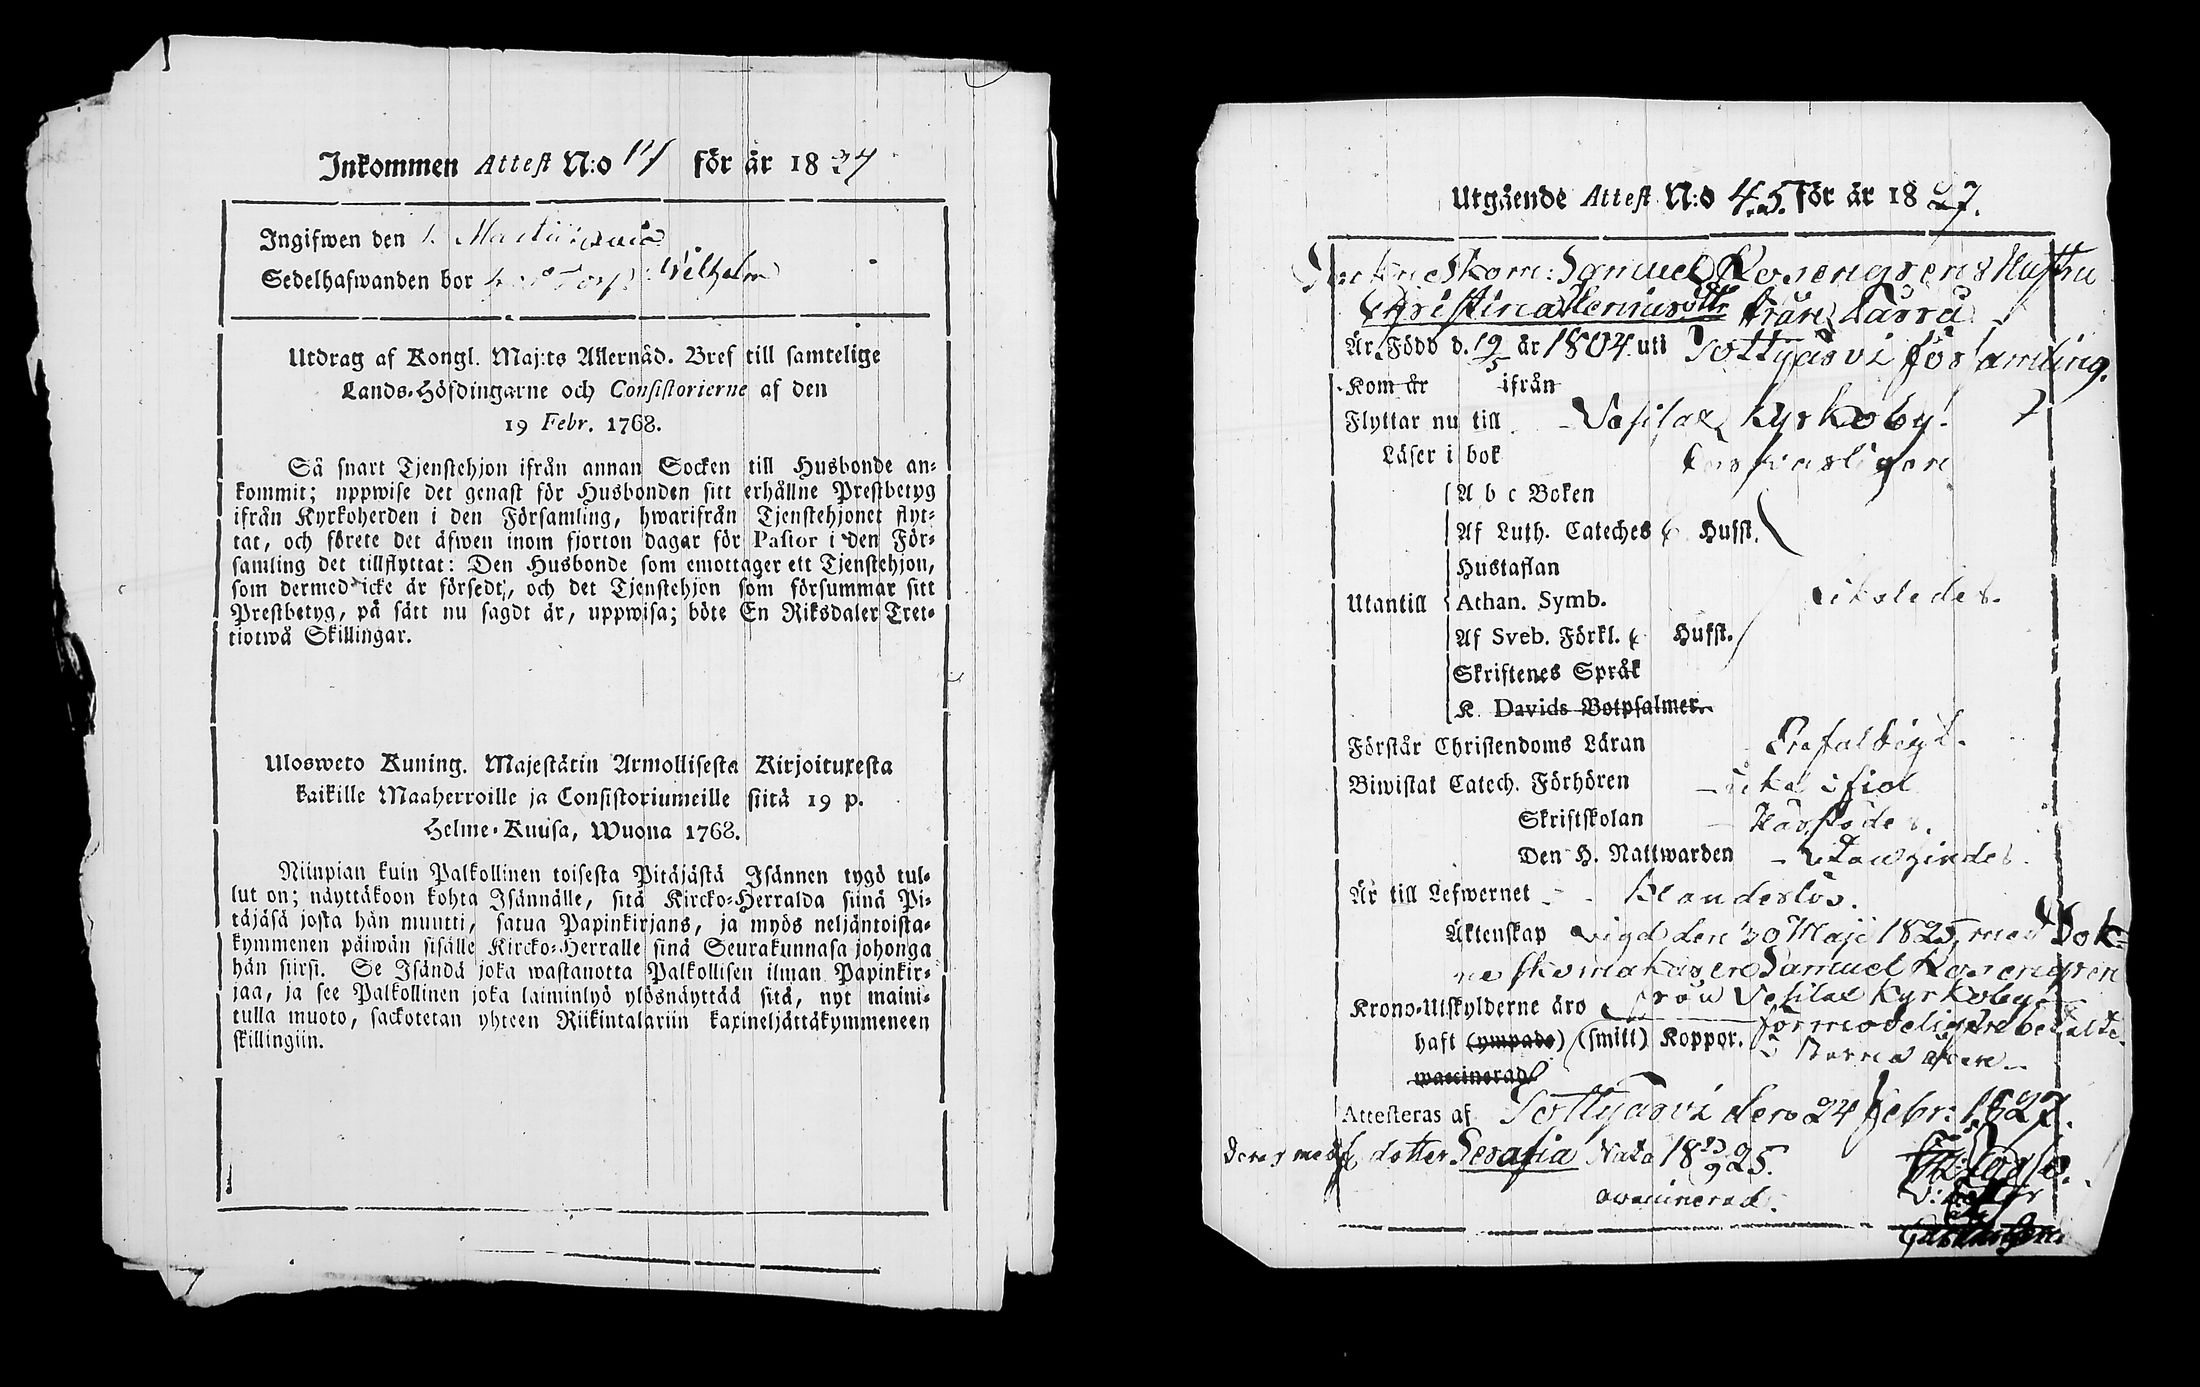 Inkommen Attest N:o 17 för år 1827
Ingifwen den 1. Martii
Sedelhafwanden bor Wilhelm
Utdrag af Kongl. Maj:ts Allernåd. Bref till samtelige
Lands-Höfdingarne och Consistorierne af den
19 Febr. 1768.
Så snart Tjenstehjon ifrån annan Socken till Husbonde an-
kommit; uppwise det genast för Husbonden sitt erhållne Prestbetyg
ifrån Kyrkoherden i den Församling, hwarifrån Tjenstehjonet flyt-
tat, och förete det äfwen inom fjorton dagar för Pastor i den För-
samling det tillflyttat: Den Husbonde som emottager ett Tjenstehjon,
som dermed icke är försedt, och det Tjenstehjon som försummar sitt
Prestbetyg, på sätt nu sagdt är, uppwisa; böte En Riksdaler Tret-
tiotwå Skillingar.
Ulosweto Kuning. Majestätin Armollisesta Kirjoituxesta
kaikille Maaherroille ja Consistoriumeille siitä 19 p.
Helme-Kuusa, Wuona 1768.
Niinpian kuin Palkollinen toisesta Pitäjästä Isännen tygö tul-
lut on; näyttäkoon kohta Isännälle, sitä Kircko-Herralda siinä Pi-
täjäsä josta hän muutti, satua Papinkirjans, ja myös neljäntoista-
kymmenen päiwän sisälle Kircko-Herralle sinä Seurakunnasa johonga
hän siirsi. Se Isändä joka wastanotta Palkollisen ilman Papinkir-
jaa, ja see Palkollinen joka laiminlyö ylösnäyttää sitä, nyt maini-
tulla muoto, sackotetan yhteen Riikintalariin kaxineljättäkymmeneen
skillingiin.
Utgående Attest N:o 45. för år 1827.
Sockne Skom: Samuel Rosengrens Hustru
Christina Henricsdtr från Laurü
Är Född d. 19/5 år 1804. uti Tottijärvi församling.
Kom år ifrån
Flyttar nu till Vesilax Kyrkoby.
Läser i bok försvarligen
A b c Boken
Af Luth. Cateches Hufst.
Hustaflan
Utantill Athan. Symb. likaledes.
Af Sveb. Förkl. Hufst.
Skriftenes Språk
K. Davids Botpsalmer.
Förstår Christendoms Läran Enfaldigt.
Biwistat Catech. Förhören icke ifid
Skriftskolan
Den H. Nattwarden
Är till Lefwernet Klanderlös.
Äktenskap vigd den 30 Maji 1825, med Sok-
ne skomakaren Samuel Rosengren
från Vesilax Kyrkoby.
Krono-Utskylderne äro förmodeligen betalte
haft (ympade) (smitt) Koppor.
waccinerad
Attesteras af Tottijärvi den 24 Febr: 1827.
Deras med dotter Serafia Nata 18 23/9 25.
ovaccinerad.